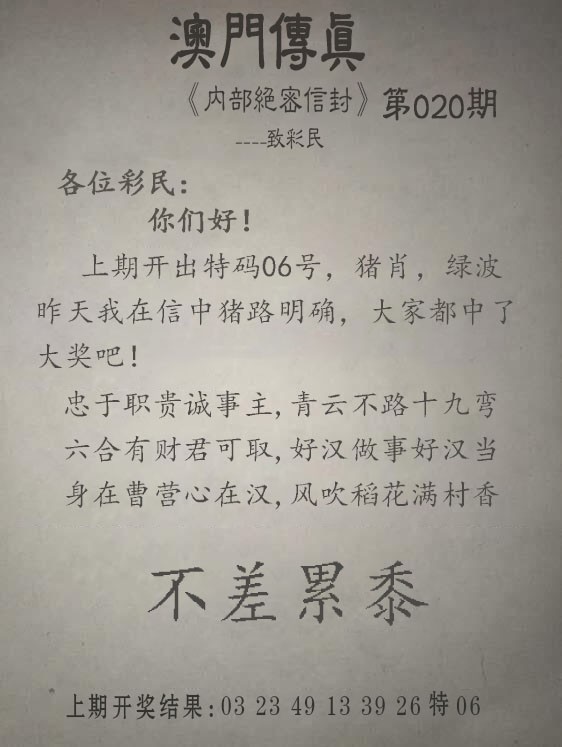 澳門傳真
《内部絕密信封》第020期
----致彩民
各位彩民：
你们好！
上期开出特码06号，猪肖，绿波
昨天我在信中猪路明确，大家都中了
大奖吧！
忠于职贵诚事主,青云不路十九弯
六合有财君可取,好汉做事好汉当
身在曹营心在汉,风吹稻花满村香
不差累黍
上期开奖结果:03 23 49 13 39 26 特 06